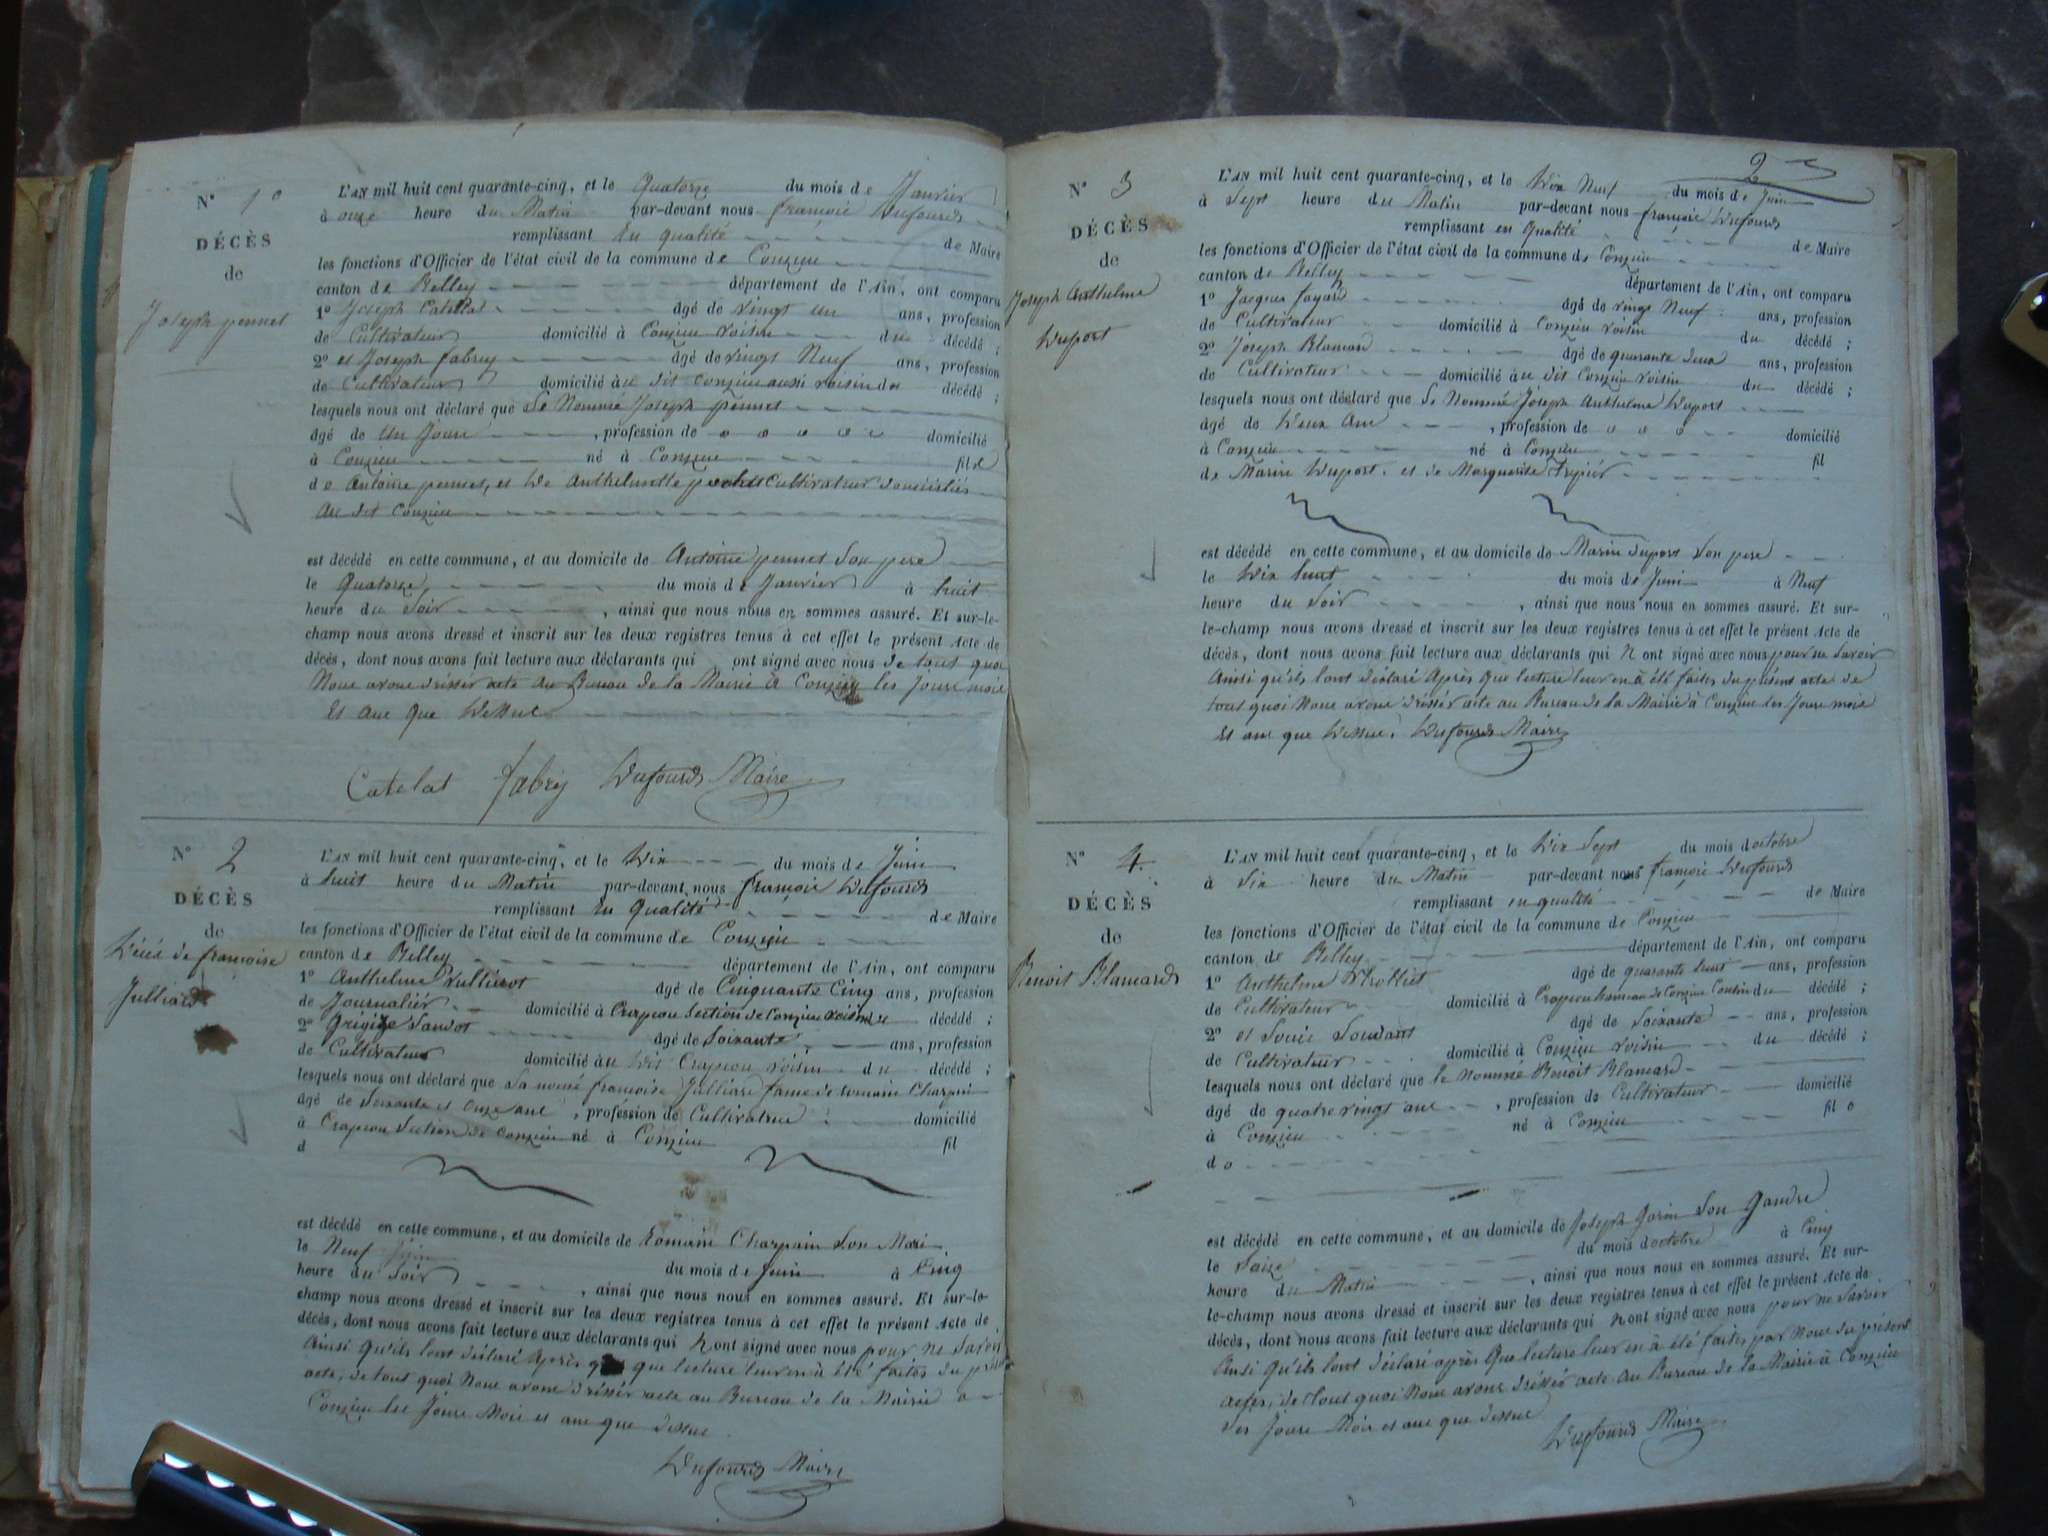 N° 1°
DÉCÈS
de
Joseph pennet
L'AN mil huit cent quarante-cinq, et le Quatorze du mois de Janvier
à onze heure du Matin par-devant nous françois Dufourd
remplissant En qualité de Maire
les fonctions d'Officier de l'état civil de la commune de Conzieu
canton de Belley département de l'Ain, ont comparu
1° Joseph Catelat âgé de vingt un ans, profession
de Cultivateur domicilié à Conzieu voisin du décédé ;
2° et Joseph fabrey âgé de vingt Neuf ans, profession
de Cultivateur domicilié au dit Conzieu aussi voisin du décédé ;
lesquels nous ont déclaré que Le Nommé Joseph pennet
âgé de Un Jour , profession de domicilié
à Conzieu né à Conzieu fil
de Antoine pennet, et De Anthelmette Cultivateur domiciliés
au dit Conzieu
est décédé en cette commune, et au domicile de Antoine pennet Son pere
le Quatorze du mois de Janvier à huit
heure du Soir , ainsi que nous nous en sommes assuré. Et sur-le-
champ nous avons dressé et inscrit sur les deux registres tenus à cet effet le présent Acte de
décès, dont nous avons fait lecture aux déclarants qui ont signé avec nous de tout quoi
Nous avons dréssér acte au Bureau de la Mairie à Conzieu les Jours mois
Et ans que Dessus
Catelat fabrey Dufourd Maire
N° 2
DÉCÈS
de
Décé de françoise
Julliard
L'AN mil huit cent quarante-cinq, et le Dix du mois de Juin
à huit heure du Matin par-devant nous françois Dufourd
remplissant En Qualité de Maire
les fonctions d'Officier de l'état civil de la commune de Conzieu
canton de Belley département de l'Ain, ont comparu
1° Anthelme Vulliérot âgé de Cinquante Cinq ans, profession
de Journalier domicilié à Crapeou Section de Conzieu voisin du décédé ;
2° âgé de Soixante ans, profession
de Cultivateur domicilié au Dit Crapeou voisin du décédé ;
lesquels nous ont déclaré que La françoise Julliard fame de romain Charpin
âgé de Soixante et Onze ans , profession de Cultivatrice domicilié
à Crapeou Section de Conzieu né à Conzieu fil
d
est décédé en cette commune, et au domicile de Romain Charpain Son Mari
le Neuf Juin du mois de Juin à Cinq
heure du Soir , ainsi que nous nous en sommes assuré. Et sur-le-
champ nous avons dressé et inscrit sur les deux registres tenus à cet effet le présent Acte de
décès, dont nous avons fait lecture aux déclarants qui n ont signé avec nous pour ne Savoir
Ainsi qu'ils l'ont déclaré Après que lecture leur en à été faites du
acte, de tout quoi Nous avons dréssér acte au Bureau de la Mairie a
Conzieu les Jours Mois et ans que dessus
Dufourd Maire
2
N° 3
DÉCÈS
de
Joseph Anthelme
Duport
L'AN mil huit cent quarante-cinq, et le Dix Neuf du mois de Juin
à Sept heure du Matin par-devant nous françois Dufourd
remplissant en Qualité de Maire
les fonctions d'Officier de l'état civil de la commune de Conzieu
canton de Belley département de l'Ain, ont comparu
1° Jacques fayard âgé de vingt Neuf ans, profession
de Cultivateur domicilié à Conzieu voisin du décédé ;
2° Joseph Blancard âgé de quarante deux ans, profession
de Cultivateur domicilié au dit Conzieu voisin du décédé ;
lesquels nous ont déclaré que Le Nommé Joseph Anthelme Duport
âgé de Deux Ans , profession de domicilié
à Conzieu né à Conzieu fil
de Marin Duport, et de Marguerite
est décédé en cette commune, et au domicile de Marin duport Son pere
le Dix huit du mois de Juin à Neuf
heure du Soir , ainsi que nous nous en sommes assuré. Et sur-
le-champ nous avons dressé et inscrit sur les deux registres tenus à cet effet le présent Acte de
décès, dont nous avons fait lecture aux déclarants qui N ont signé avec nous pour ne Savoir
Ainsi qu'ils l'ont déclaré Après Que lecture leur en à été faites du présent acte de
tout quoi Nous avons dréssér acte au Bureau de la Mairie à Conzieu les Jours mois
Et ans que Dessus. Dufourd Maire
N° 4.
DÉCÈS
de
Benoit Blancard
L'AN mil huit cent quarante-cinq, et le Dix Sept du mois doctobre
à Six heure du Matin par-devant nous françois Dufourd
remplissant en qualité de Maire
les fonctions d'Officier de l'état civil de la commune de Conzieu
canton de Belley département de l'Ain, ont comparu
1° Anthelme âgé de quarante huit ans, profession
de Cultivateur domicilié à Crapeou hameau de Conzieu du décédé ;
2° et âgé de Soixante ans, profession
de Cultivateur domicilié à Conzieu voisin du décédé ;
lesquels nous ont déclaré que le Nommé Benoit Blancard
âgé de quatre vingt ans , profession de Cultivateur domicilié
à Conzieu né à Conzieu fil
d
est décédé en cette commune, et au domicile de Joseph Son Gendre
le Saize du mois doctobre à Cinq
heure du Matin , ainsi que nous nous en sommes assuré. Et sur-
le-champ nous avons dressé et inscrit sur les deux registres tenus à cet effet le présent Acte de
décès, dont nous avons fait lecture aux déclarants qui N ont signé avec nous pour ne Savoir
Ainsi Qu'ils l'ont déclaré après Que lecture leur en à été faites par Nous du présent
actes, de Tout quoi Nous avons dréssér acte Au Bureau de la Mairie à Conzieu
Les Jours Mois et ans que dessus
Dufourd Maire